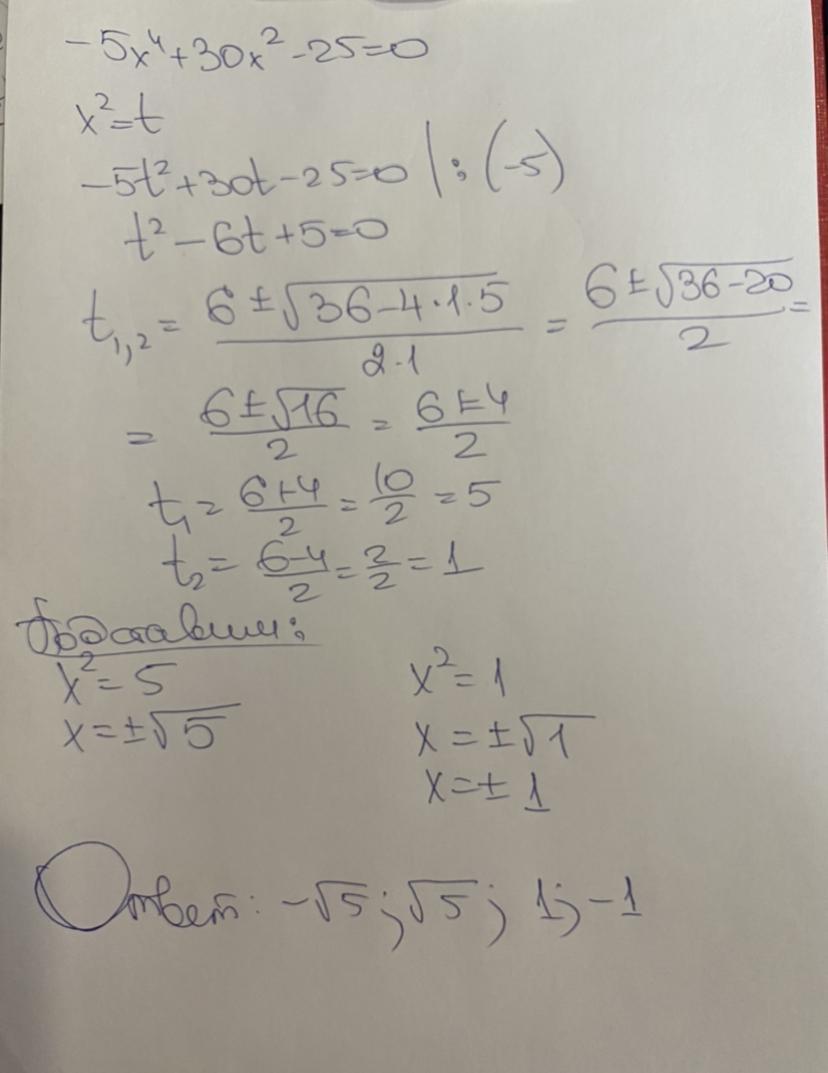 -5x⁴+30x²-25=0
x²=t
-5t²+30t-25=0 |:(-5)
t²-6t+5=0
t₁,₂= (6±√(36-4·1·5))/(2·1) = (6±√(36-20))/2 =
= (6±√16)/2 = (6±4)/2
t₁= (6+4)/2 = 10/2 =5
t₂= (6-4)/2 = 2/2 =1
Подставим:
x²=5 x²=1
x=±√5 x=±√1
x=±1
Ответ: -√5; √5; 1; -1